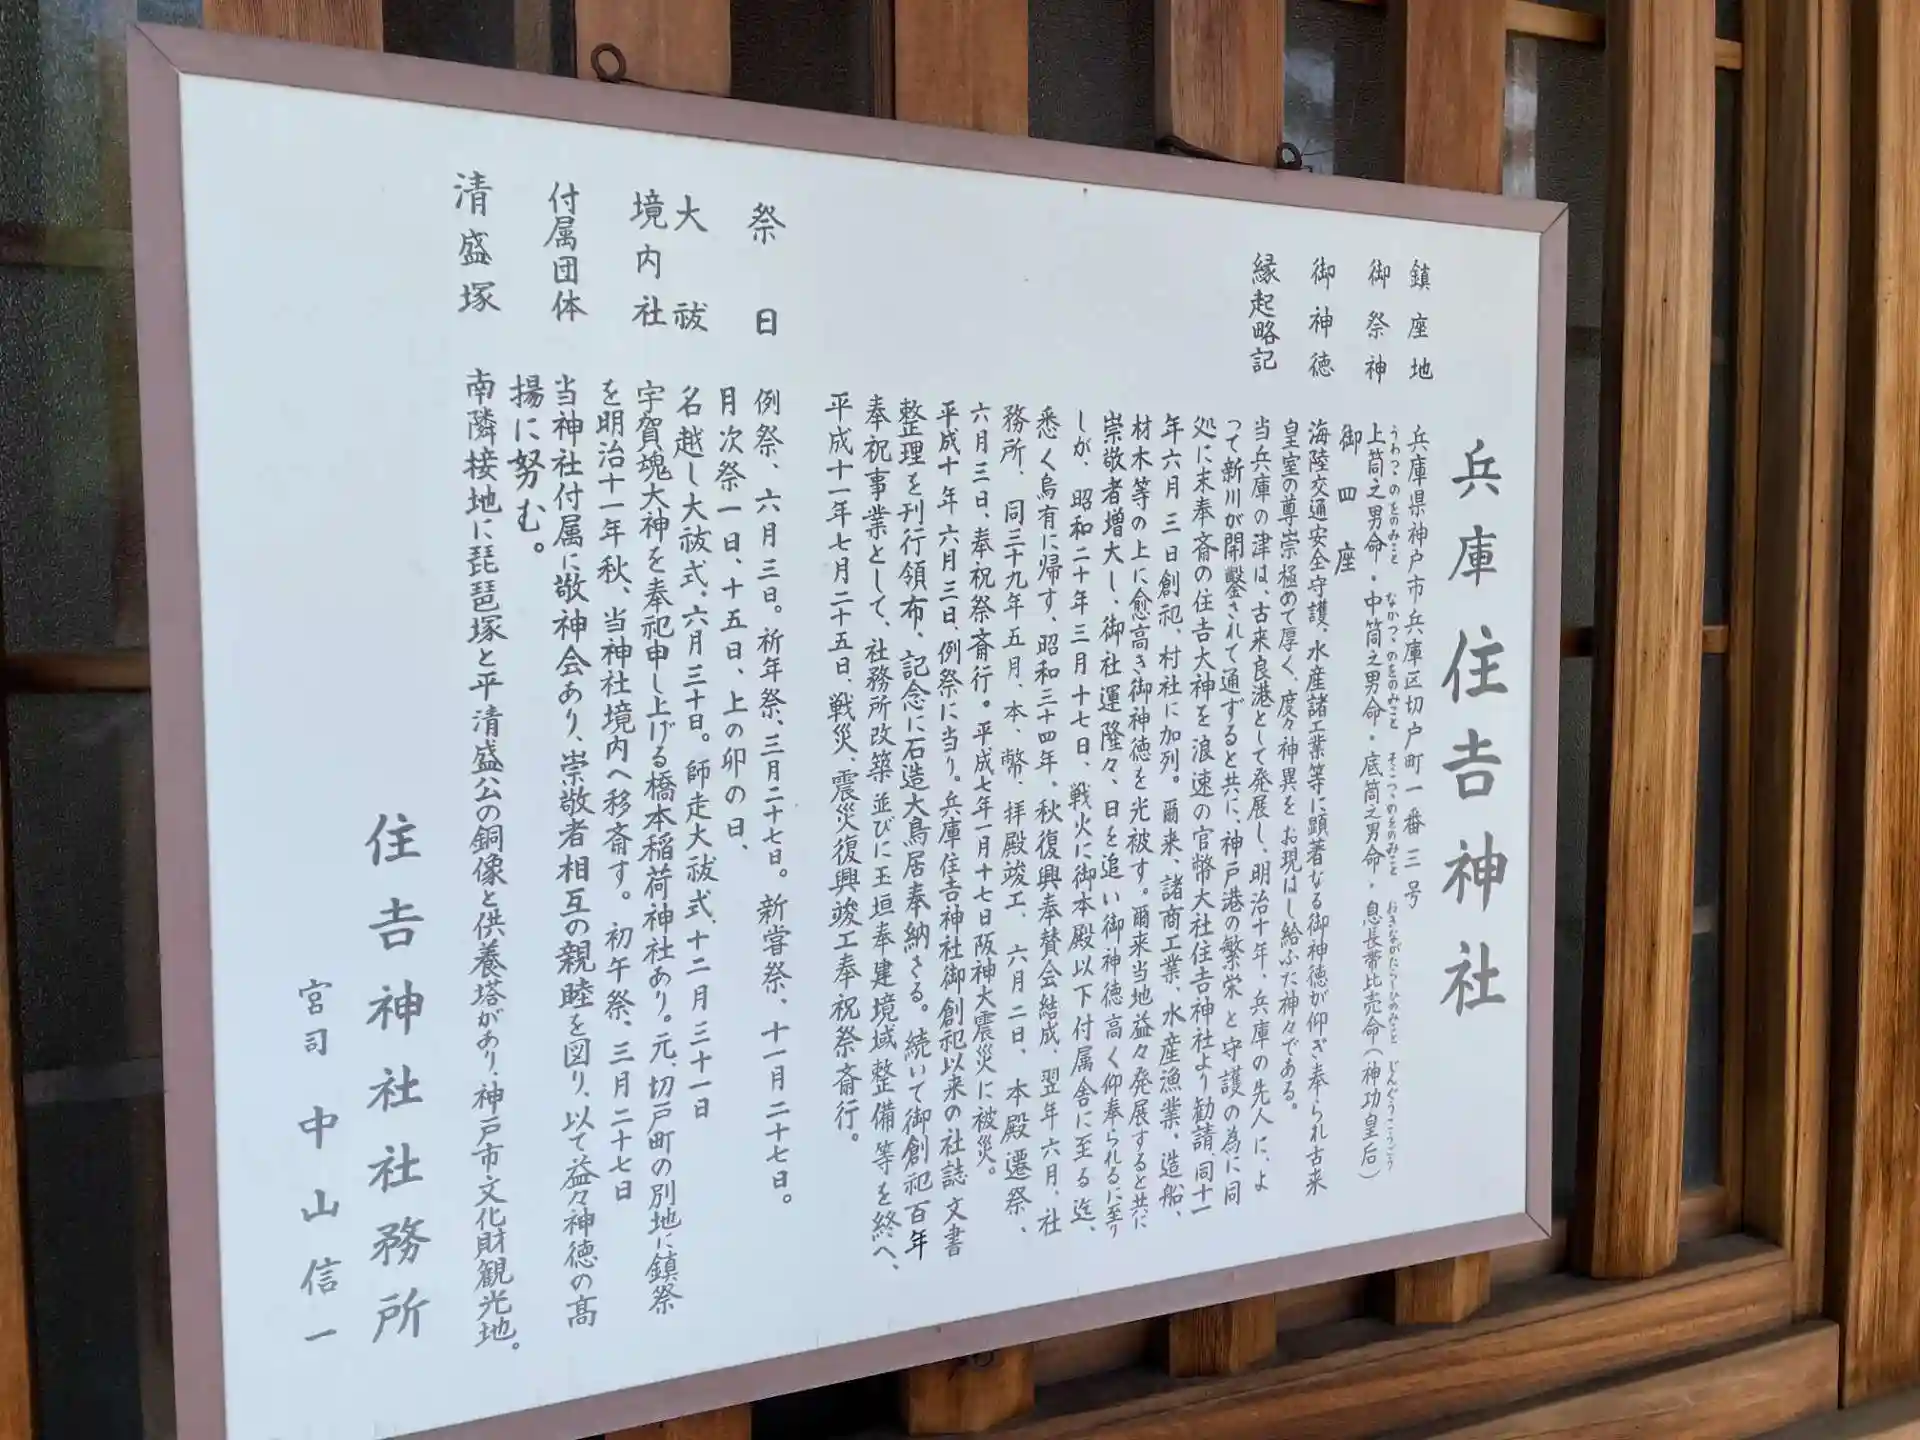 兵庫住吉神社
鎮座地　兵庫県神戸市兵庫区切戸町一番三号
御祭神　上筒之男命・中筒之男命・底筒之男命・息長帯比売命（神功皇后）
うわつゝのをのみこと　なかつゝのをのみこと　そこつゝのをのみこと　おきながたらしひめのみこと　じんぐうこうごう
御四座
御神徳　海陸交通安全守護、水産諸工業等に顕著なる御神徳が仰ぎ奉られ古来
皇室の尊崇極めて厚く、度々神異をお現はし給ふた神々である。
縁起略記　当兵庫の津は、古来良港として発展し、明治十年、兵庫の先人に、よ
って新川が開鑿されて通ずると共に、神戸港の繁栄と守護の為に同
処に末奉斎の住吉大神を浪速の官幣大社住吉神社より勧請、同十一
年六月三日創祀、村社に加列。爾来、諸商工業、水産漁業、造船、
材木等の上に愈高き御神徳を光被す。爾来当地益々発展すると共に
崇敬者増大し、御社運隆々、日を追い御神徳高く仰奉られるに至り
しが、昭和二十年三月十七日、戦火に御本殿以下付属舎に至る迄、
悉く烏有に帰す、昭和三十四年、秋復興奉賛会結成、翌年六月、社
務所、同三十九年五月、本、幣、拝殿竣工、六月二日、本殿遷祭、
六月三日、奉祝祭斎行。平成七年一月十七日阪神大震災に被災。
平成十年六月三日、例祭に当り。兵庫住吉神社御創祀以来の社誌文書
整理を刊行領布、記念に石造大鳥居奉納さる。続いて御創祀百年
奉祝事業として、社務所改築並びに玉垣奉建境域整備等を終へ、
平成十一年七月二十五日、戦災、震災復興竣工奉祝祭斎行。
祭日　例祭、六月三日。祈年祭、三月二十七日。新嘗祭、十一月二十七日。
月次祭一日、十五日、上の卯の日、
大祓　名越し大祓式、六月三十日。師走大祓式、十二月三十一日
境内社　宇賀魂大神を奉祀申し上げる橋本稲荷神社あり。元、切戸町の別地に鎮祭
を明治十一年秋、当神社境内へ移斎す。初午祭、三月二十七日
付属団体　当神社付属に敬神会あり、崇敬者相互の親睦を図り、以て益々神徳の高
揚に努む。
清盛塚　南隣接地に琵琶塚と平清盛公の銅像と供養塔があり、神戸市文化財観光地。
住吉神社社務所
宮司　中山信一